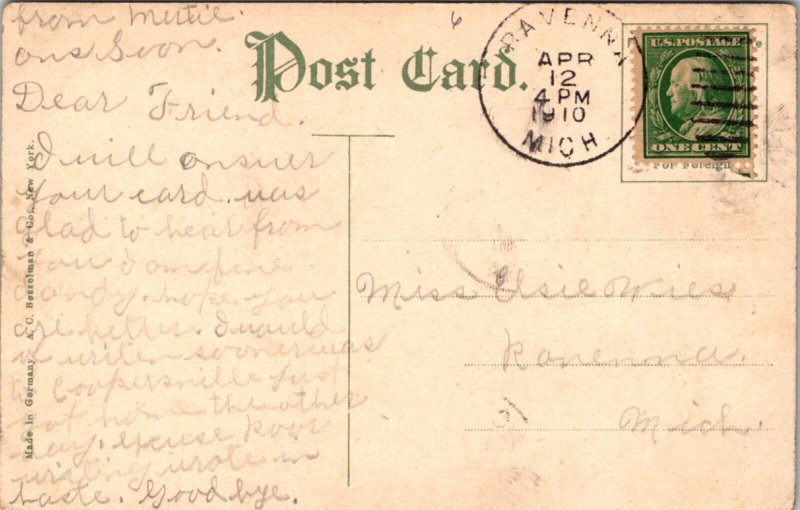 from Mutie.
ans Soon.
Dear Friend.
I will answer
your card. was
glad to hear from
you I am fine
dandy. hope you
are better. I would
written sooner was
to Coopersville just
got home the other
day. excuse poor
writing wrote in
haste. Goodbye.
Post Card.
RAVENNA
APR
12
4 PM
1910
MICH
U.S. POSTAGE
ONE CENT
For Foreign
Miss Elsie Wies
Ravenna.
Mich.
Made in Germany. A. C. Bosselman & Co., New York.
6